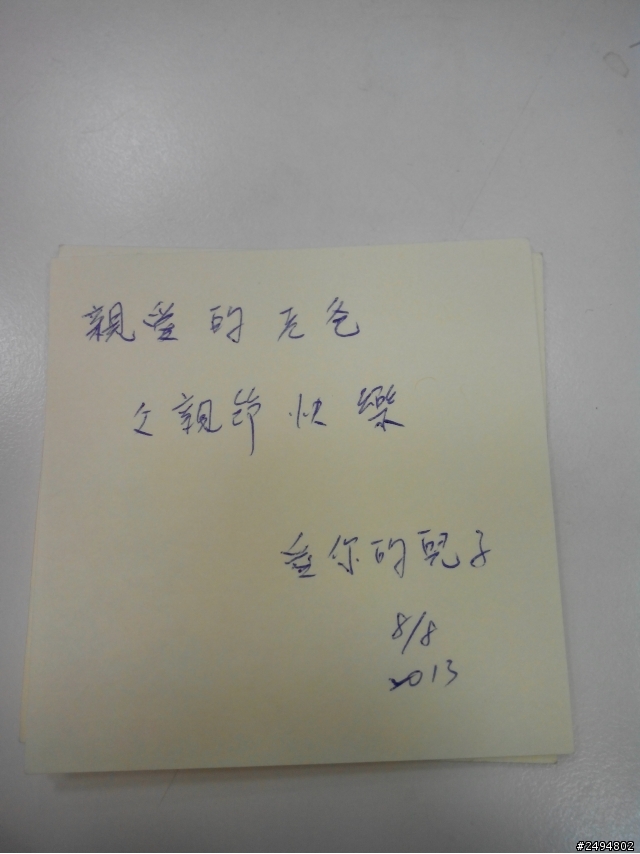 親愛的老爸
父親節快樂
愛你的兒子
8/8
2013
#2494802